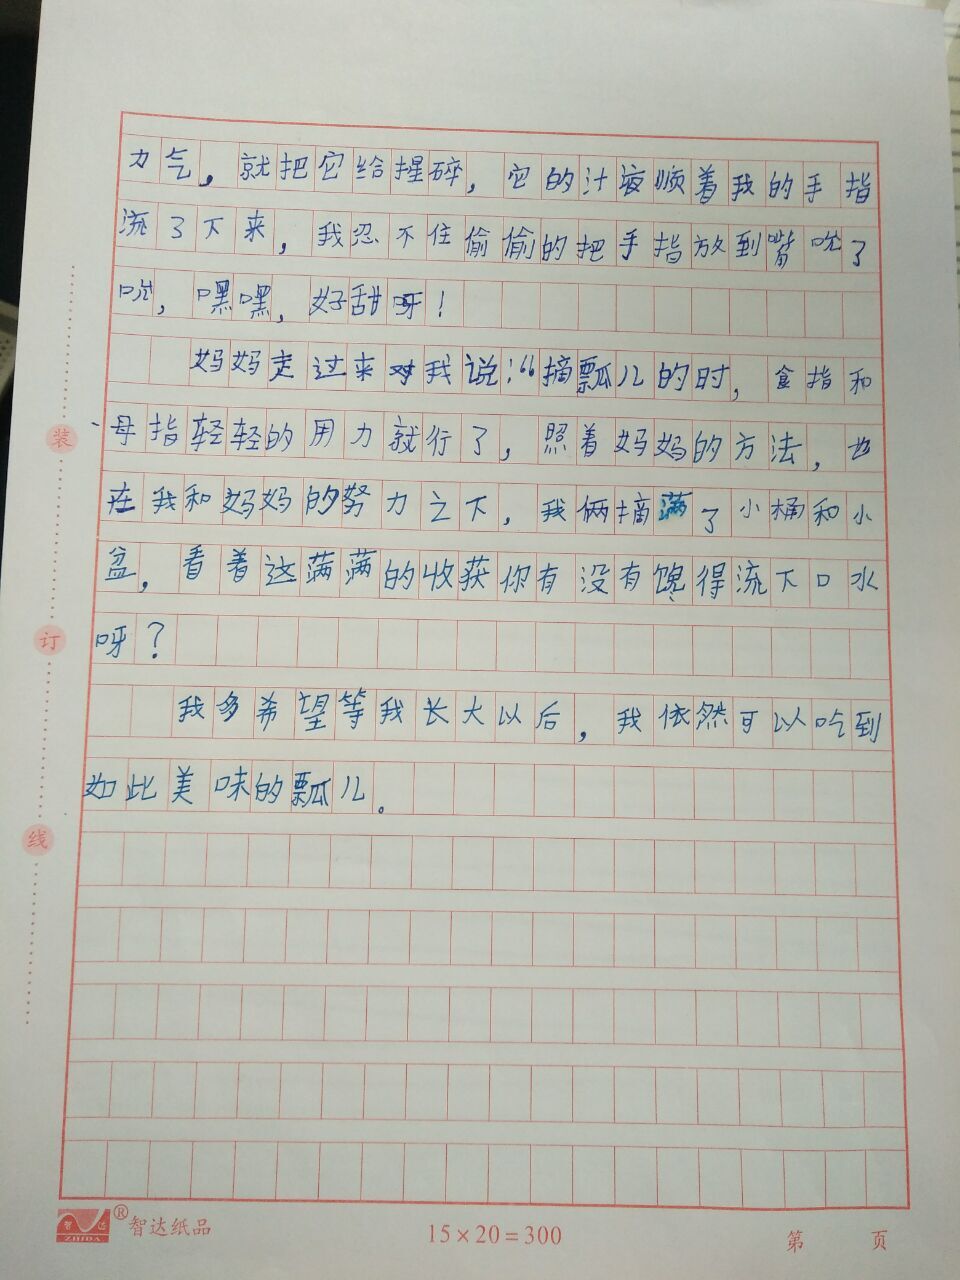 力气，就把它给捏碎，它的汁液顺着我的手指
流了下来，我忍不住偷偷的把手指放到嘴吮了
吮，嘿嘿，好甜呀！
妈妈走过来对我说：“摘瓢儿的时，食指和
母指轻轻的用力就行了，照着妈妈的方法，也
在我和妈妈的努力之下，我俩摘满了小桶和小
盆，看着这满满的收获你有没有馋得流下口水
呀？
我多希望等我长大以后，我依然可以吃到
如此美味的瓢儿。
装
订
线
智达 ZHIDA ® 智达纸品
15×20=300
第 页